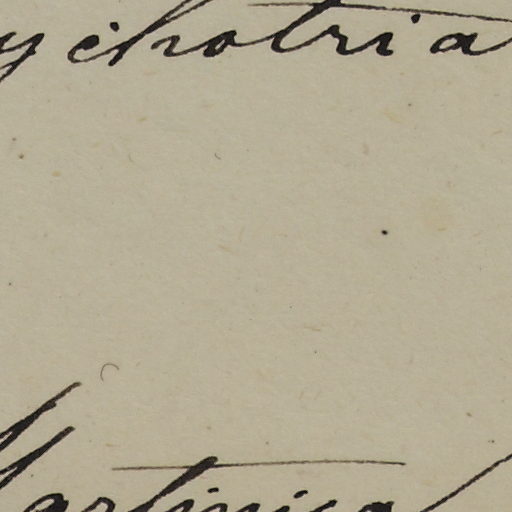 ychotria
Martinica